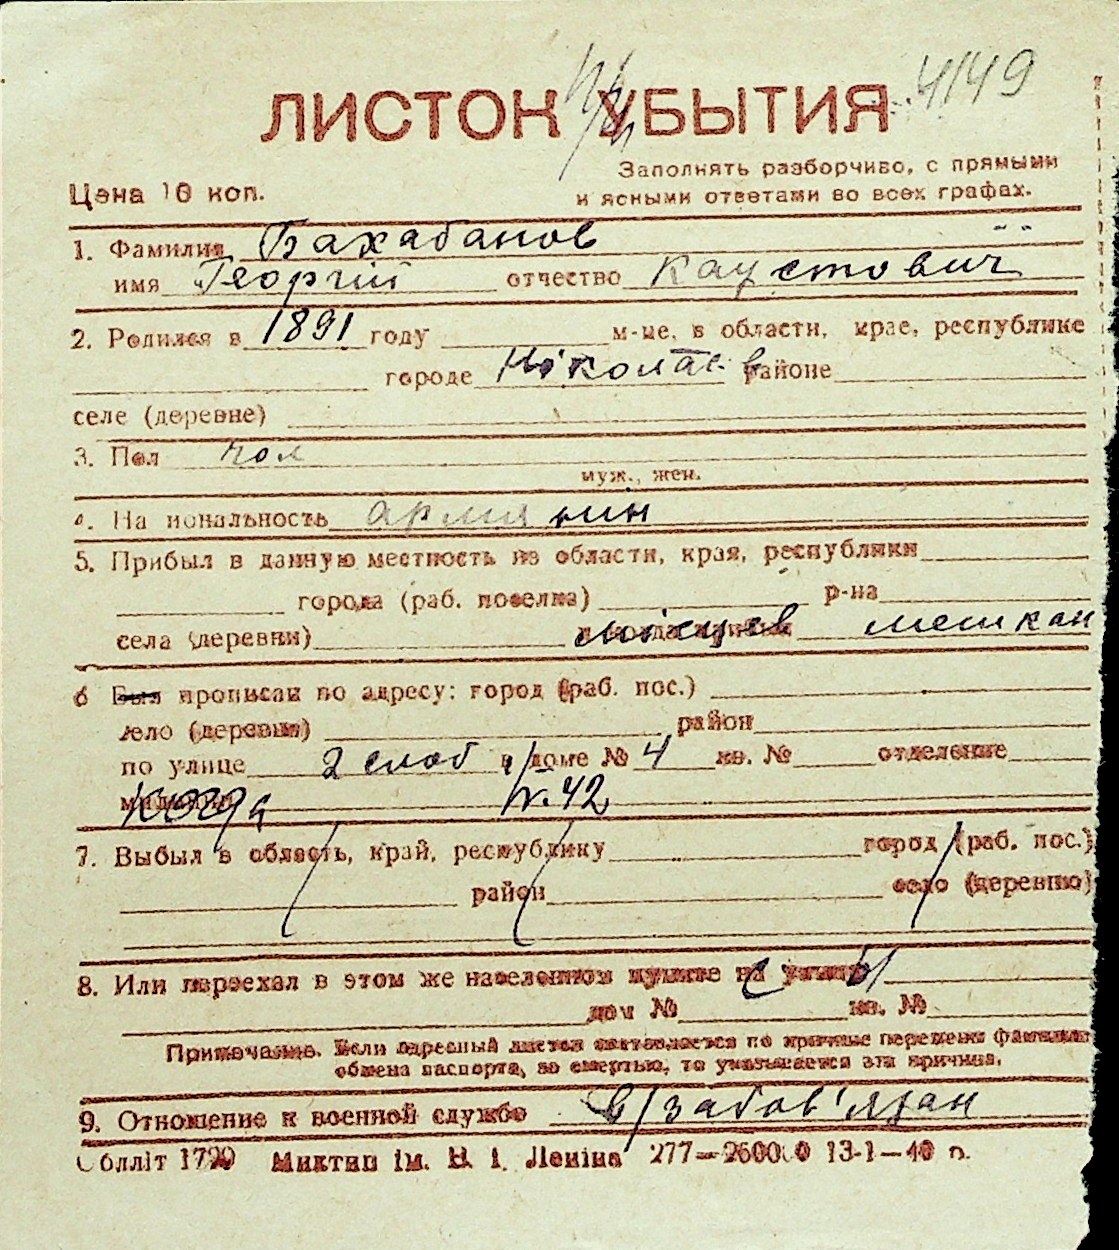 ЛИСТОК УБЫТИЯ 4149
Заполнять разборчиво, с прямыми
Цена 10 коп. и ясными ответами во всех графах.
1. Фамилия Бахабанов
имя Георгій отчество Каустовіч
2. Родился в 1891 году м-це, в области, крае, республике
городе Ніколаїв районе
селе (деревне)
3. Пол чол
муж., жен.
4. На иональность армянин
5. Прибыл в данную местность из области, края, республики
города (раб. поселка) р-на
села (деревни) місцев мешкан
6 Был прописан по адресу: город (раб. пос.)
село (деревня) район
по улице 2 слоб в доме № 4 кв. № отделение
милиции когда IV. 42
7. Выбыл в область, край, республику город (раб. пос.)
район село (деревню)
8. Или переехал в этом же населенном пункте на улицу
дом № кв. №
Примечание. Если адресный листок составляется по причине перемены фамилии
обмена паспорта, со смертью, то указывается эта причина.
9. Отношение к военной службе в/забов'язан
Облліт 1720 Миктип ім. В. І. Леніна 277—260000 13-1—40 п.